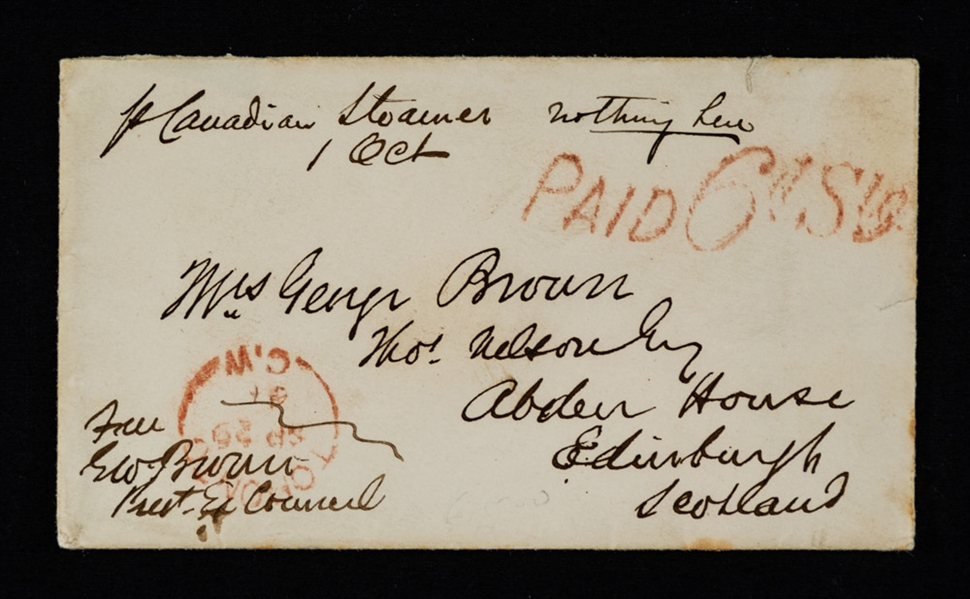 p Canadian Steamer nothing here
1 Oct
PAID 6d Stg.
Mrs George Brown
Thos. Nelson Esq
Abden House
Edinburgh
Scotland
C.W
SP 29
Free
Geo. Brown
Prest. Ex Council